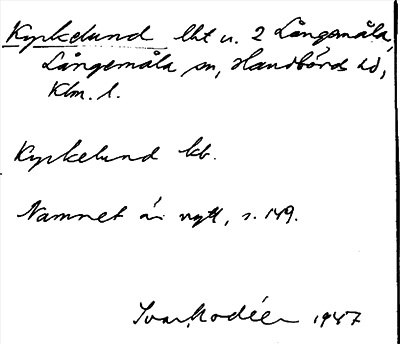 Kyrkelund lht u. 2 Långemåla,
Långemåla sn, Handbörds hd,
Klm. l.
Kyrkelund kb.
Namnet är nytt, s. 149.
Ivar Modéer 1947